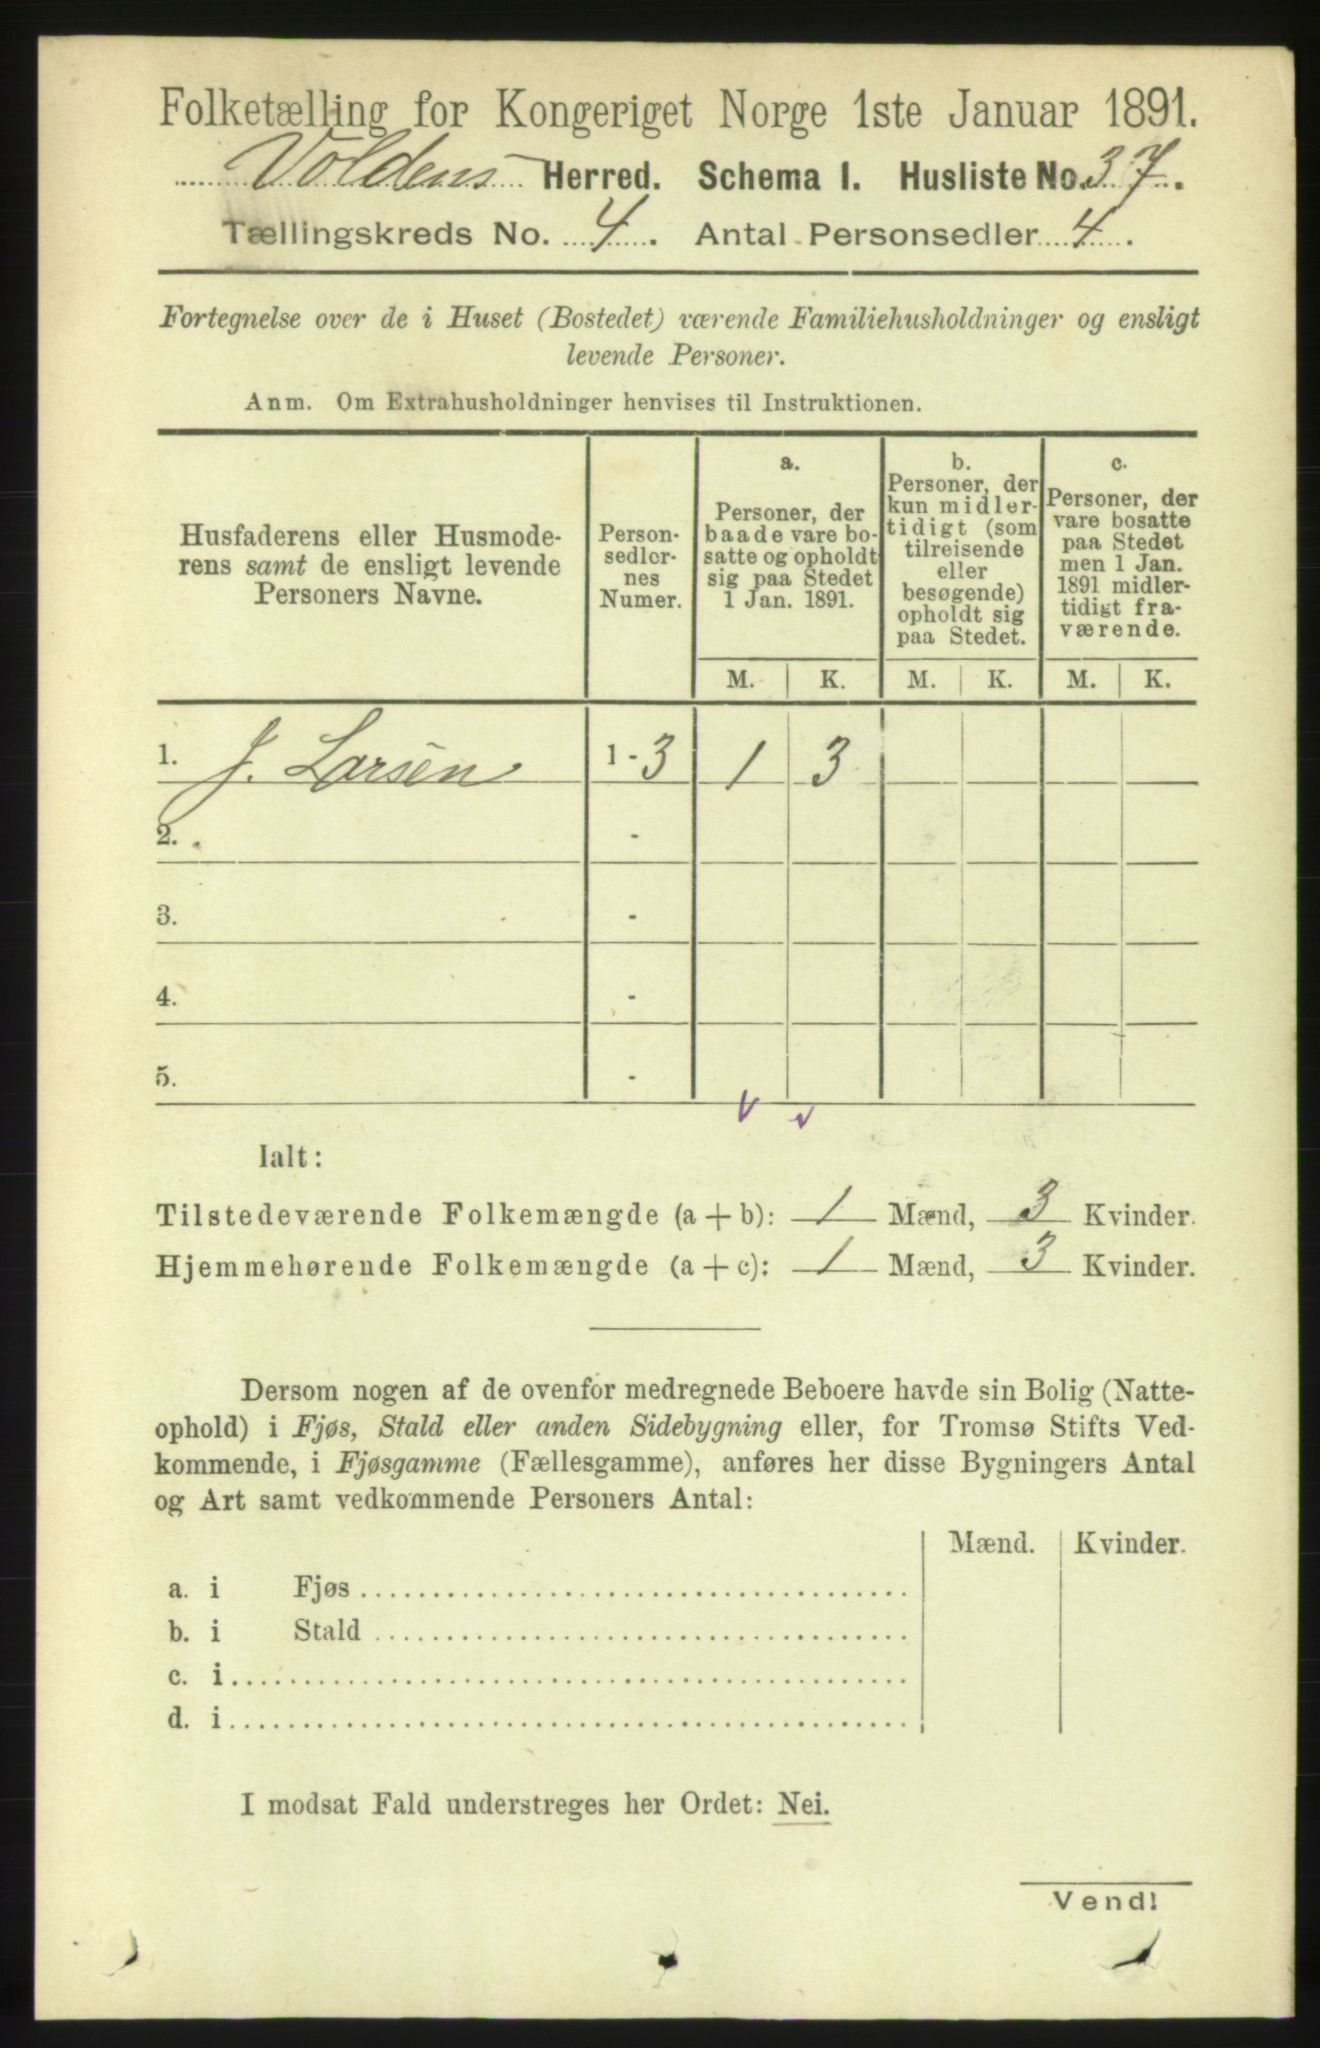 Folketælling for Kongeriget Norge 1ste Januar 1891.
Voldens Herred. Schema I. Husliste No. 37.
Tællingskreds No. 4. Antal Personsedler 4.
Fortegnelse over de i Huset (Bostedet) værende Familiehusholdninger og ensligt
levende Personer.
Anm. Om Extrahusholdninger henvises til Instruktionen.
Husfaderens eller Husmode-
rens samt de ensligt levende
Personers Navne.
Person-
sedler-
nes
Numer.
a.
Personer, der
baade vare bo-
satte og opholdt
sig paa Stedet
1 Jan. 1891.
b.
Personer, der
kun midler-
tidigt (som
tilreisende
eller
besøgende)
opholdt sig
paa Stedet.
c.
Personer, der
vare bosatte
paa Stedet
men 1 Jan.
1891 midler-
tidigt fra-
værende.
M. K. M. K. M. K.
1. J. Larsen 1 - 3 1 3
2. -
3. -
4. -
5. -
Ialt:
Tilstedeværende Folkemængde (a + b): 1 Mænd, 3 Kvinder.
Hjemmehørende Folkemængde (a + c): 1 Mænd, 3 Kvinder.
Dersom nogen af de ovenfor medregnede Beboere havde sin Bolig (Natte-
ophold) i Fjøs, Stald eller anden Sidebygning eller, for Tromsø Stifts Ved-
kommende, i Fjøsgamme (Fællesgamme), anføres her disse Bygningers Antal
og Art samt vedkommende Personers Antal:
Mænd. Kvinder.
a. i Fjøs
b. i Stald
c. i
d. i
I modsat Fald understreges her Ordet: Nei.
Vend!